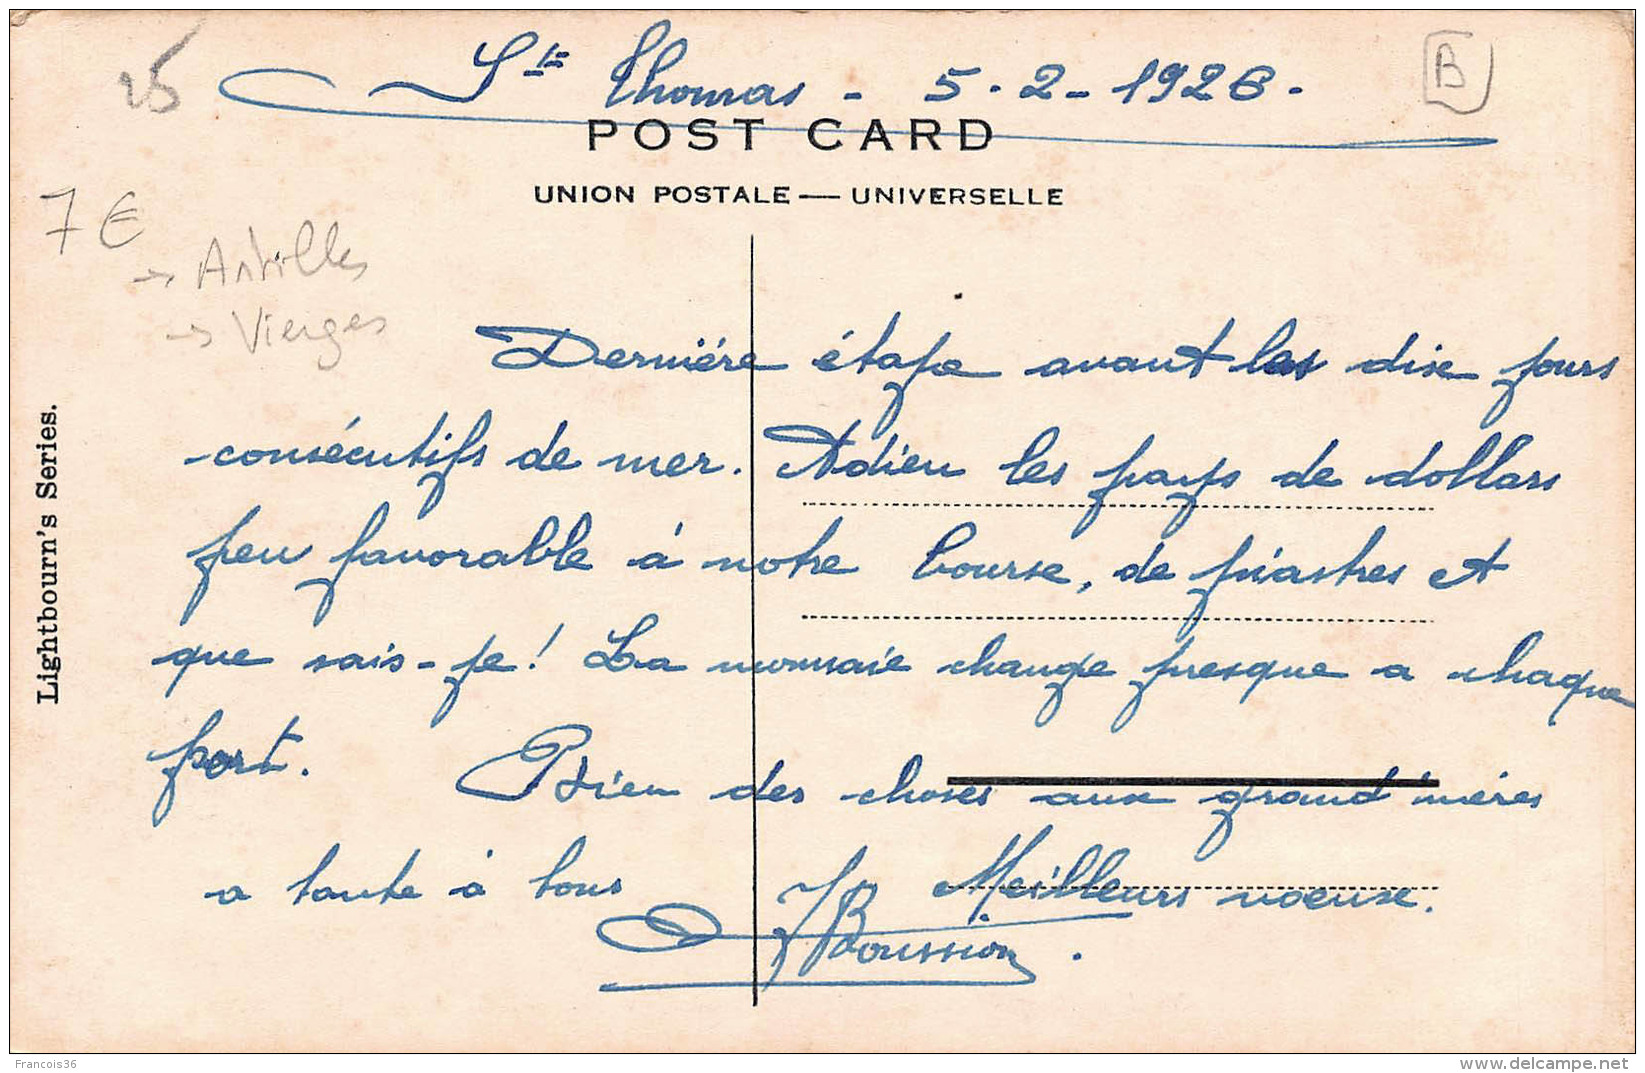 25
Ste Thomas - 5.2-1926.
B
POST CARD
UNION POSTALE — UNIVERSELLE
7€
→ Antilles
→ Vierges
Lightbourn's Series.
Derniére étape avant les dix jours
consécutifs de mer. Adieu les pays de dollars
peu favorable à notre bourse, de piastres et
que sais-je! La monnaie change presque a chaque
port. Bien des choses aux grand'méres
a tante à tous Meilleurs voeux.
JBoussion.
Francois36
www.delcampe.net